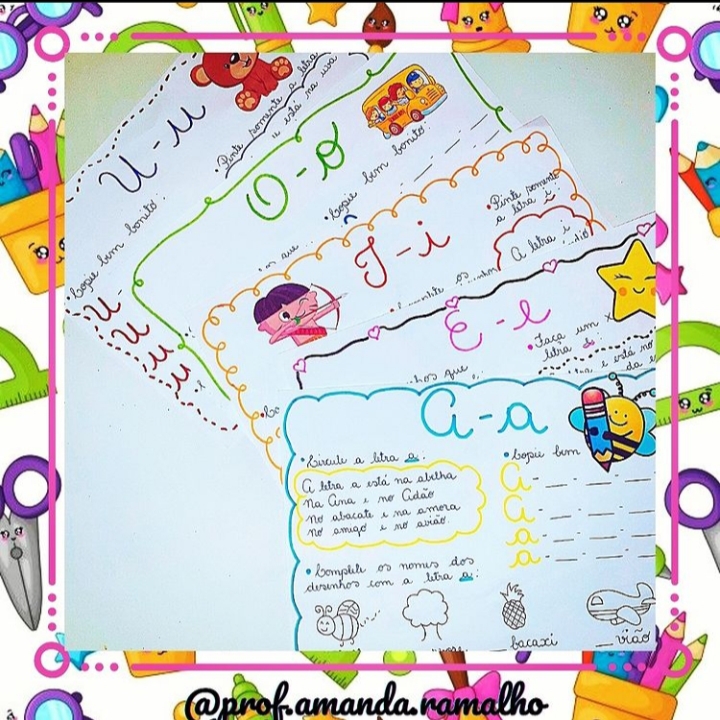 U - u
• Pinte somente a letra
u está na uva
Copie bem bonito
U -
U
u
u
O - o
• Copie bem bonito
que
I - i
• Pinte somente
a letra i
A letra i
E - e
• Faça um x
letra
e está no
que
A - a
• Circule a letra a:
A letra a está na abelha
Na Ana e no Adão
No abacate e na amora
No amigo e no avião.
• Copie bem
A -
A -
a -
a -
• Complete os nomes dos
desenhos com a letra a:
bacaxi
vião
@prof.amanda.ramalho